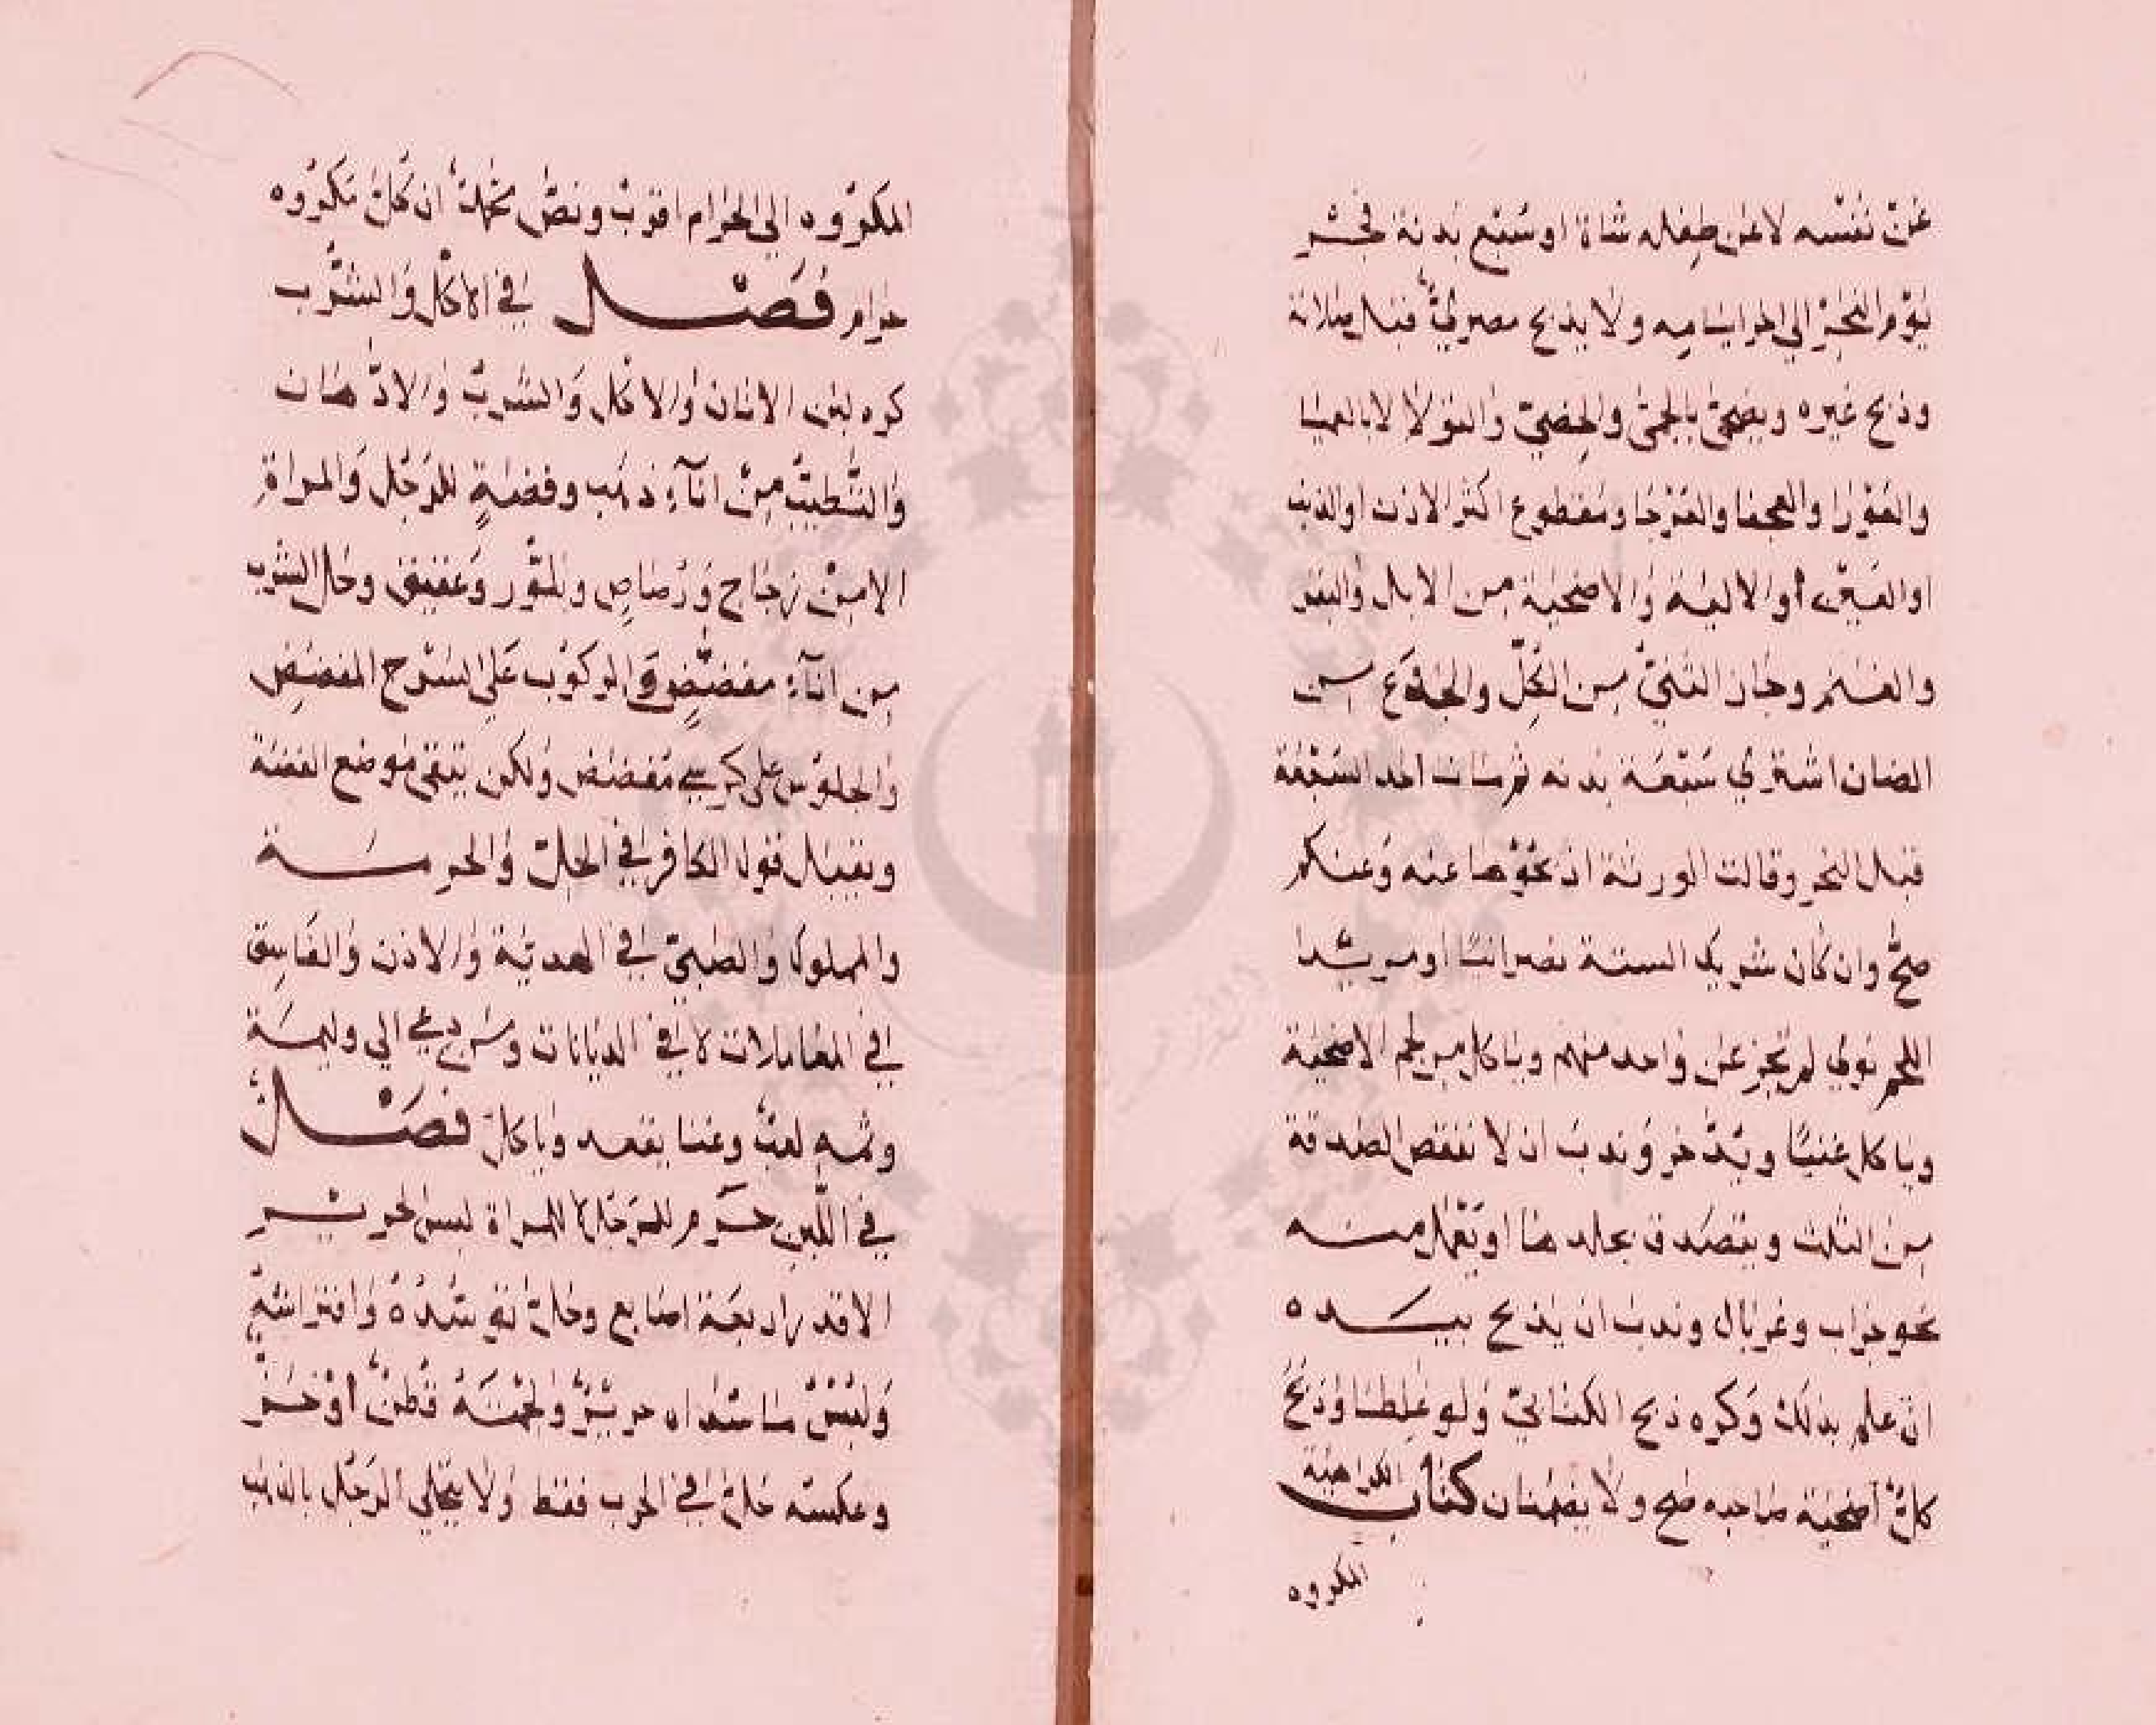 عن نفسه لا عن طفله شاة او سبع بدنة فجر
يوم النحر الي اخر ايامه ولا يذبح مصري قبل صلاته
وذبح غيره ويضحي بالجما والخصي والثولا لا بالعميا
والعورا والعجفا والعرجا ومقطوع اكثر الاذن او الذنب
او العين أو الالية والاضحية من الابل والبقر
والغنم وجاز الثني من الكل والجذع من
الضان اشتري سبعة بدنة ثم مات احد السبعة
قبل النحر وقالت الورثة اذبحوها عنه وعنكم
صح وان كان شريك الستة نصرانيا او مريدا
اللحم نوي لم يجز عن واحد منهم وياكل من لحم الاضحية
وياكل غنيا ويدخر وندب ان لا ننقص الصدقة
من الثلث ويتصدق بجلدها او يعمل منه
نحو جراب وغربال وندب ان يذبح بيده
ان علم بذلك وكره ذبح الكتابي ولو غلطا وذبح
كل أضحية صاحبه صح ولا يضمنان كتاب الكراهية
المكروه
المكروه الي الحرام اقرب ونص محمد ان كل مكروه
حرام فصل في الاكل والشرب
كره لبن الاتان والاكل والشرب والادهان
والتطيب من انآء ذهب وفضة للرجل والمراة
لا من زجاج ورصاص وبلور وعقيق وحل الشرب
من انآء مفضض والركوب علي السرج المفضض
والجلوس على كرسي مفضض ولكن يتقي موضع الفضة
ويقبل قول الكافر في الحل والحرمة
والمملوك والصبي في الهدية والاذن والفاسق
في المعاملات لا في الديانات ومن دعي الي وليمة
وثمه لعب وغنا يقعد وياكل فصل
في اللبس حرم للرجل لا للمراة لبس الحرير
الا قدر اربعة اصابع وحل توسده وافتراشه
ولبس ما سداه حرير ولحمته قطن أو خز
وعكسه حل في الحرب فقط ولا يتحلي الرجل بالذهب